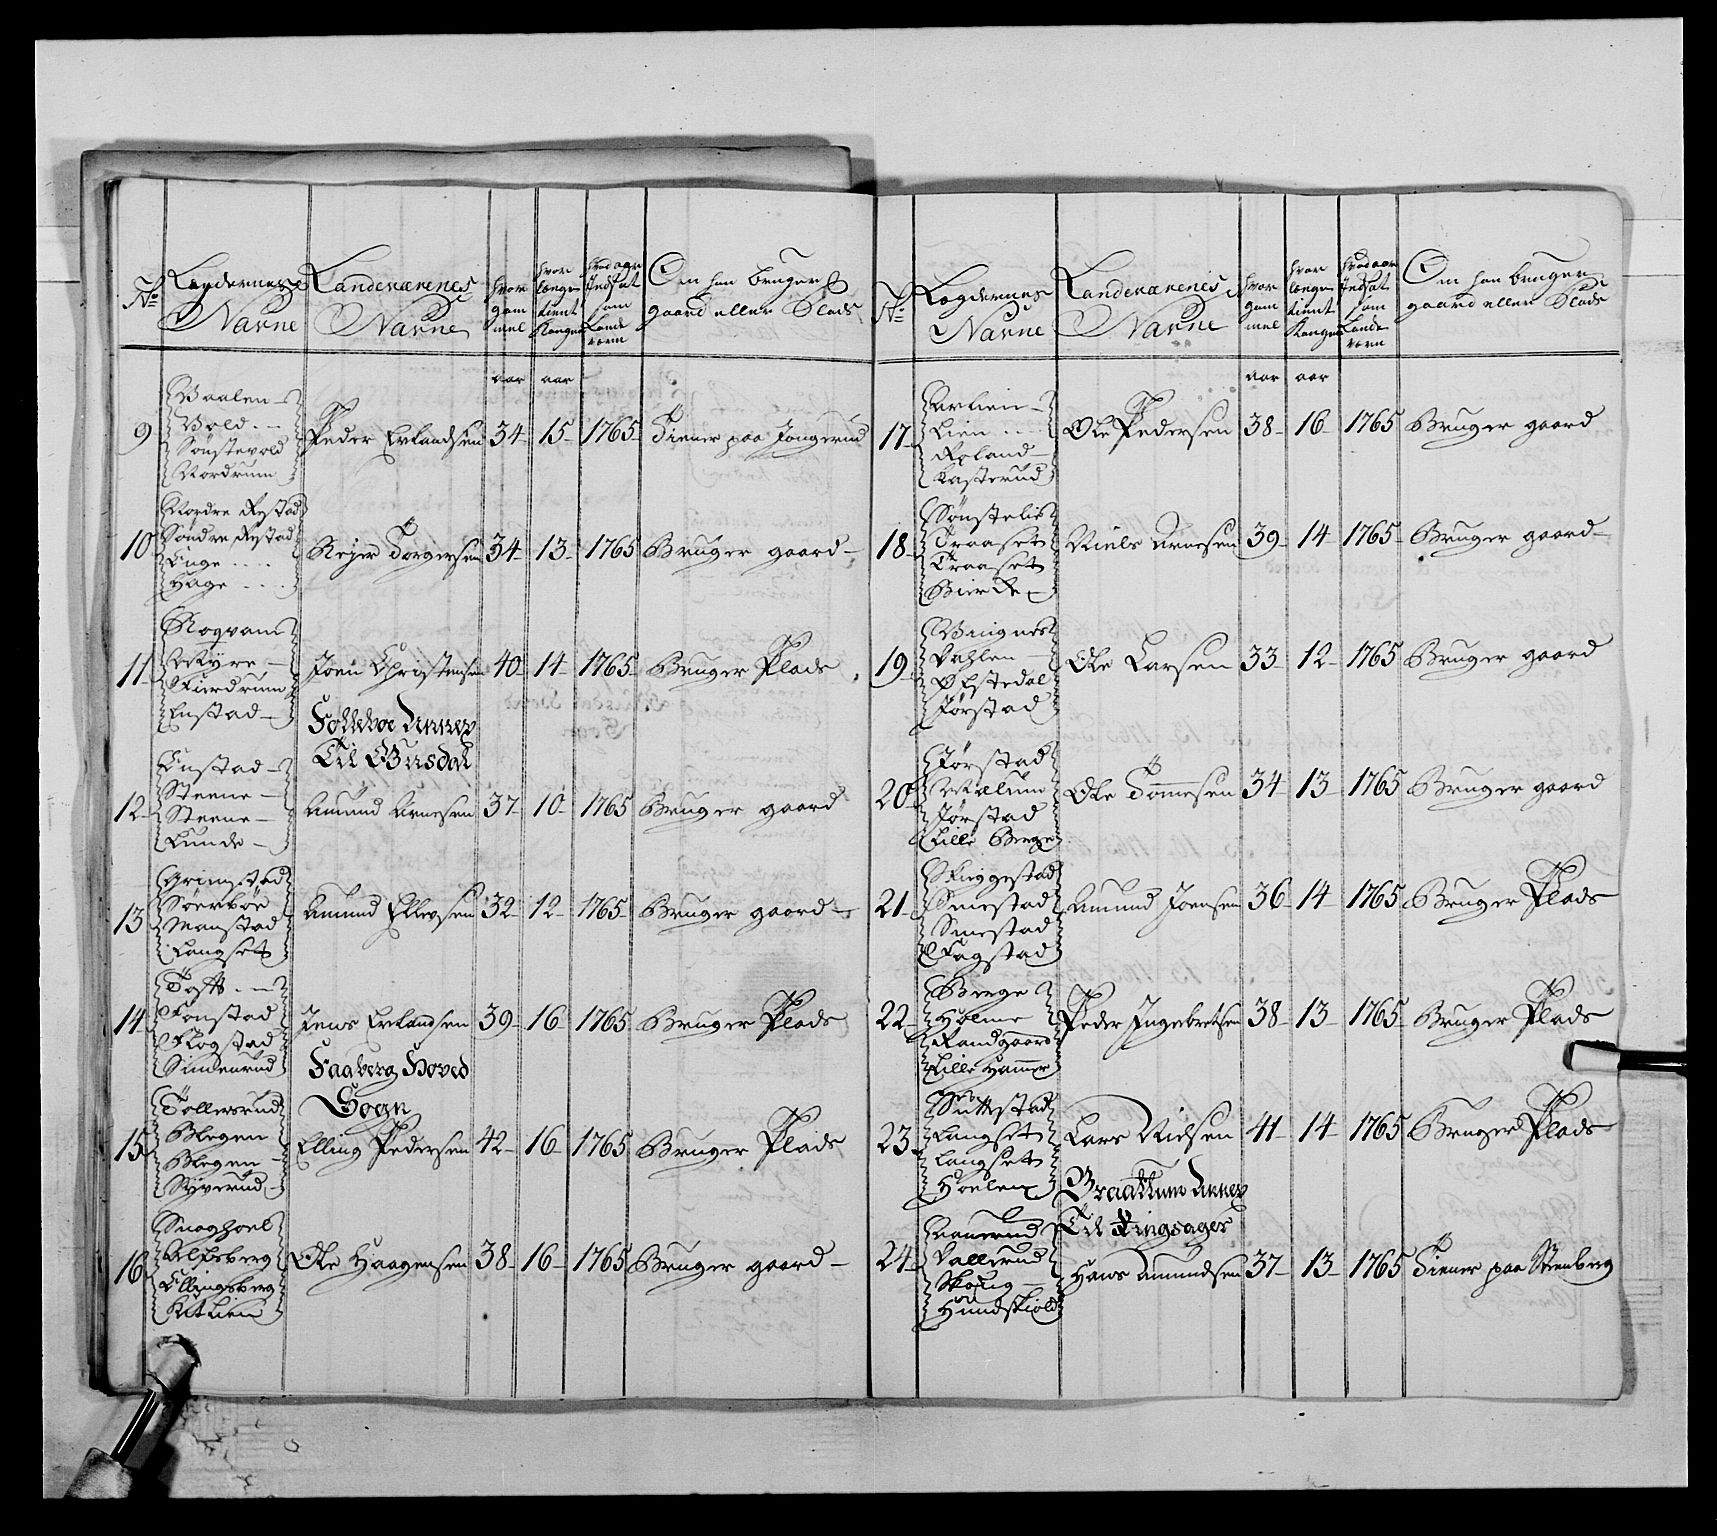 No
Lægdernes
Navne
Landeværnes
Navne
hvor
gam
mel
hvor
længe
tient
Kongen
hvad aar
Indsat
som
Lande
værn
Om han bruger
gaard eller Plads
aar aar
9
Baalen
Vold
Sønstevold
Nordrum
Peder Erlandsen 34 15 1765 Tiener paa Jongerud
10
Nordre Rystad
Søndre Rystad
Lage
Hage
Rejer Torgersen 34 13 1765 Bruger gaard
11
Roqvam
Myre
Furdrum
Enstad
Joen Christensen 40 14 1765 Bruger Plads
Folleboe Annex
Til Gusdal
12
Enstad
Steene
Steene
Lunde
Amund Arnesen 37 10 1765 Bruger gaard
13
Grimstad
Søerboe
Manstad
Langset
Amund Ellevsen 32 12 1765 Bruger gaard
14
Toft
Fonstad
Flogstad
Simenrud
Jens Erlandsen 39 16 1765 Bruger Plads
Faaberg Hoved
Sogn
15
Tollersrud
Blegen
Blegen
Ryverud
Elling Pedersen 42 16 1765 Bruger Plads
16
Snoghoel
Alfsberg
Ellingsberg
Kitlien
Ole Haagensen 38 16 1765 Bruger gaard
No
Lægdernes
Navne
Landeværnes
Navne
hvor
gam
mel
hvor
længe
tient
Kongen
hvad aar
Indsat
som
Lande
værn
Om han bruger
gaard eller Plads
aar aar
17
Urlien
Lien
Roland
Kasterud
Ole Pedersen 38 16 1765 Bruger gaard
18
Sønstelie
Traaset
Traaset
Bierke
Niels Arnesen 39 14 1765 Bruger gaard
19
Vingnes
Dahlen
Ølstedal
Jørstad
Ole Larsen 33 12 1765 Bruger gaard
20
Jørstad
Mælum
Jørstad
Lille Berge
Ole Tommesen 34 13 1765 Bruger gaard
21
Skyggestad
Smestad
Smestad
Fagstad
Amund Joensen 36 14 1765 Bruger Plads
22
Berge
Holme
Randgaard
Lille Hammer
Peder Ingebretsen 38 13 1765 Bruger Plads
23
Suttestad
Langset
Langset
Hoelen
Lars Nielsen 41 14 1765 Bruger Plads
Braattum Annex
Til Ringsager
24
Aanerud
Dallerud
Skoug
Hundskiold
Hans Amundsen 37 13 1765 Tiener paa Steenberg